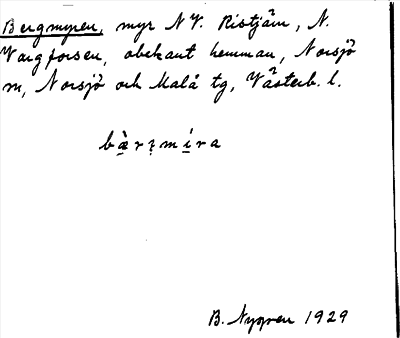 Bergmyren, myr NV. Ristjärn, N.
Vargforsen, obekant hemman, Norsjö
sn, Norsjö och Malå tg, Västerb. l.
bæ̀rm̥íra
B. Nygren 1929